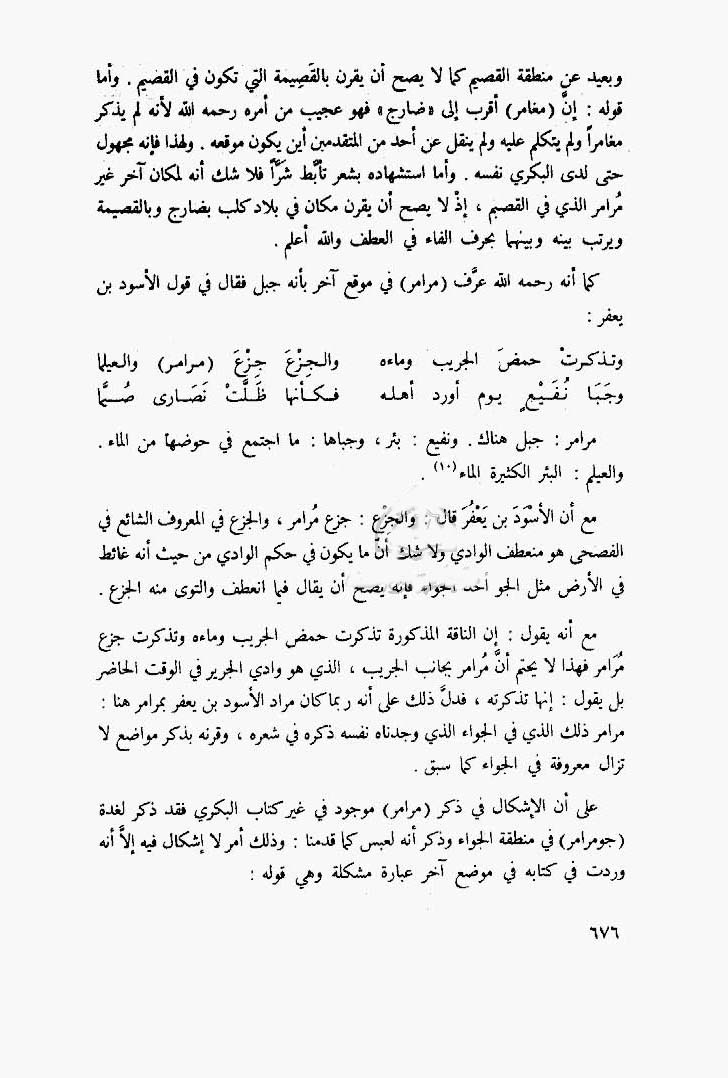 وبعيد عن منطقة القصيم كما لا يصح أن يقرن بالقَصِيمة التي تكون في القصيم . وأما
قوله : إنَّ (مغامر) أقرب إلى «ضارج» فهو عجيب من أمره رحمه الله لأنه لم يذكر
مغامراً ولم يتكلم عليه ولم ينقل عن أحد من المتقدمين أين يكون موقعه . ولهذا فإنه مجهول
حتى لدى البكري نفسه . وأما استشهاده بشعر تأبَّط شَرَّاً فلا شك أنه لمكان آخر غير
مُرامر الذي في القصيم ، إذْ لا يصح أن يقرن مكان في بلاد كلب بضارج وبالقصيمة
ويرتب بينه وبينهما بحرف الفاء في العطف والله أعلم .
كما أنه رحمه الله عرَّف (مرامر) في موقع آخر بأنه جبل فقال في قول الأسود بن
يعفر :
وتذكرتْ حمضَ الجريب وماءه والجِزْعَ جِزْعَ (مرامر) والعيلما
وجَبَا نُفَيْعٍ يوم أورد أهله فكأنها ظَلَّتْ نَصَارى صُيَّما
مرامر : جبل هناك . ونفيع : بئر ، وجباها : ما اجتمع في حوضها من الماء .
والعيلم : البئر الكثيرة الماء(١٠) .
مع أن الأسْوَدَ بن يَعْفُرَ قال : والجِزْع : جزع مُرامر ، والجزع في المعروف الشائع في
الفصحى هو منعطف الوادي ولا شك أنَّ ما يكون في حكم الوادي من حيث أنه غائط
في الأرض مثل الجو أحد الجواء فإنه يصح أن يقال فيما انعطف والتوى منه الجزع .
مع أنه يقول : إن الناقة المذكورة تذكرت حمض الجريب وماءه وتذكرت جزع
مُرَامر فهذا لا يحتم أنَّ مُرامر بجانب الجريب ، الذي هو وادي الجرير في الوقت الحاضر
بل يقول : إنها تذكرته ، فدلَّ ذلك على أنه ربما كان مراد الأسود بن يعفر بمرامر هنا :
مرامر ذلك الذي في الجواء الذي وجدناه نفسه ذكره في شعره ، وقرنه بذكر مواضع لا
تزال معروفة في الجواء كما سبق .
على أن الإشكال في ذكر (مرامر) موجود في غير كتاب البكري فقد ذكر لغدة
(جومرامر) في منطقة الجواء وذكر أنه لعبس كما قدمنا : وذلك أمر لا إشكال فيه إلاَّ أنه
وردت في كتابه في موضع آخر عبارة مشكلة وهي قوله :
٦٧٦